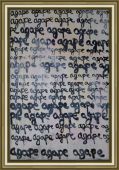 agape agape agape agape
agape agape agape agape
agape agape agape agape
agape agape agape agape
agape agape agape agape
agape agape agape agape
agape agape agape agape
agape agape agape agape
agape agape agape agape
agape agape agape agape
agape agape agape
agape agape agape